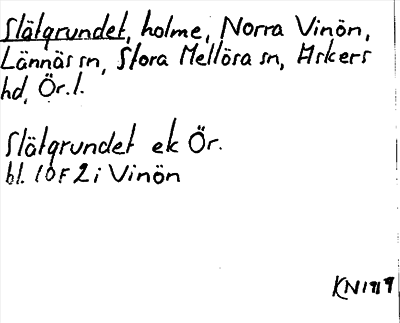 Slätgrundet, holme, Norra Vinön,
Lännäs sn, Stora Mellösa sn, Askers
hd, Ör. l.
Slätgrundet ek Ör.
bl. 10F2i Vinön